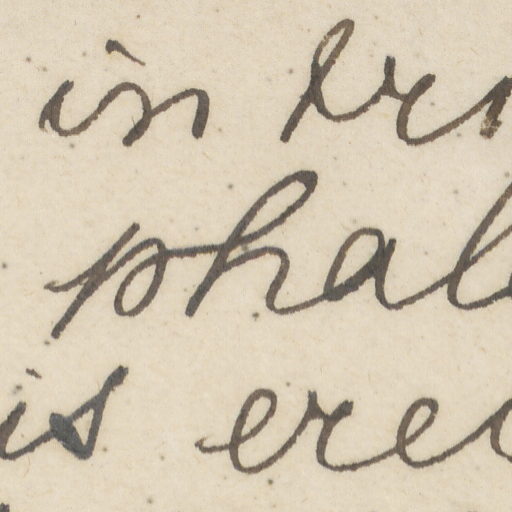 in
phal
is erec